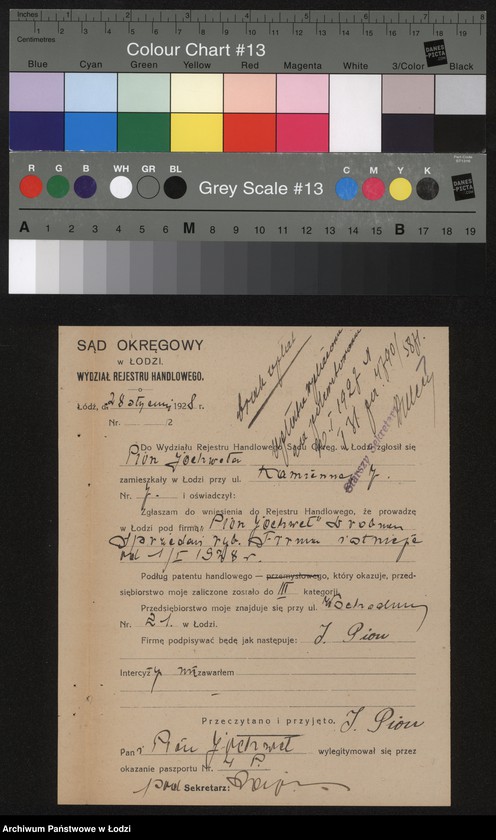 Inches 1 2 3 4 5 6 7 8
Centimetres 1 2 3 4 5 6 7 8 9 10 11 12 13 14 15 16 17 18 19
Colour Chart #13
DANES-PICTA
Blue Cyan Green Yellow Red Magenta White 3/Color Black
R G B WH GR BL Grey Scale #13 C M Y K
DANES-PICTA
A 1 2 3 4 5 6 M 8 9 10 11 12 13 14 15 B 17 18 19
SĄD OKRĘGOWY
W ŁODZI.
WYDZIAŁ REJESTRU HANDLOWEGO.
Łódź, d. 28 stycznia 1928 r.
Nr. 2
Starszy Sekretarz
Do Wydziału Rejestru Handlowego Sądu Okręg. w Łodzi zgłosił się
Pion Jochweta
zamieszkały w Łodzi przy ul. Kamiennej 7.
Nr. 7. i oświadczył:
Zgłaszam do wniesienia do Rejestru Handlowego, że prowadzę
w Łodzi pod firmą: "Pion Jochwet" Drobna
Sprzedaż ryb. Firma istnieje
od 1/I 1928 r.
Podług patentu handlowego — przemysłowego, który okazuje, przed-
siębiorstwo moje zaliczone zostało do III kategorji.
Przedsiębiorstwo moje znajduje się przy ul. Wschodniej
Nr. 21. w Łodzi.
Firmę podpisywać będę jak następuje: J. Pion
Intercyzy nie zawarłem
Przeczytano i przyjęto. J. Pion
Pan Pion Jochwet wylegitymował się przez
okazanie paszportu Nr. 4 P.
pod Sekretarz:
Archiwum Państwowe w Łodzi